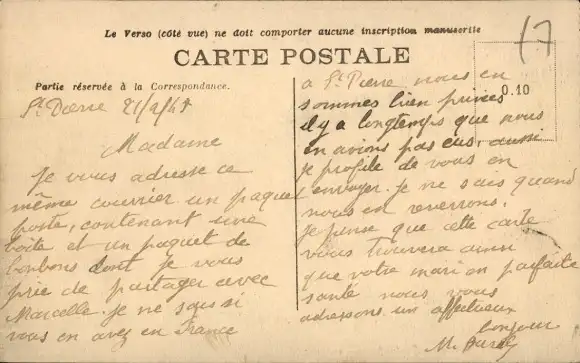 Le Verso (côté vue) ne doit comporter aucune inscription manuscrite
CARTE POSTALE
Partie réservée à la Correspondance.
17
0.10
St Pierre 21/2/41
Madame
Je vous adresse ce
même courrier un paquet
poste, contenant une
boîte et un paquet de
bonbons dont je vous
prie de partager avec
Marcelle. je ne sais si
vous en avez en France
a St Pierre nous en
sommes bien privés
il y a longtemps que nous
en avions pas eus, aussi
je profite de vous en
envoyer. je ne sais quand
nous en reverrons.
je pense que cette carte
vous trouvera ainsi
que votre mari en parfaite
santé nous vous
adressons un affectueux
bonjour
M.